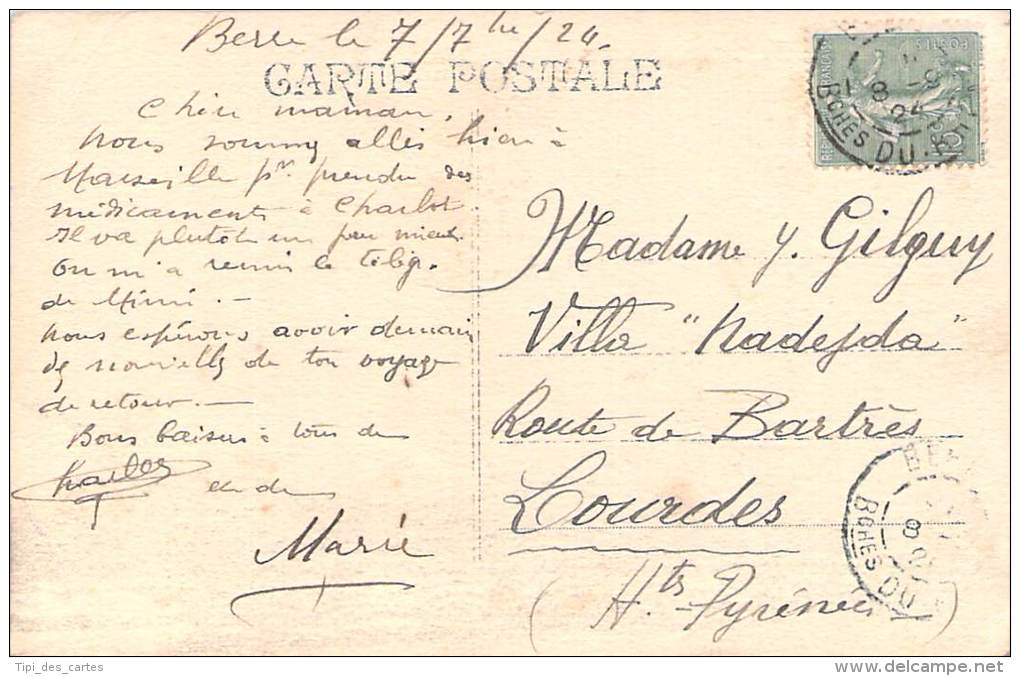 Berre le 7/7bre/24
CARTE POSTALE
Chère maman,
nous sommes allés hier à
Marseille pr. prendre des
médicaments à Charlot.
Il va plutôt un peu mieux.
On m'a remis le télég.
de Mimi. —
nous espérons avoir demain
des nouvelles de ton voyage
de retour. —
Bons baisers à tous de
Charlot
et de
Marie
POSTES
8 - 9
24
BCHES DU
Madame y. Gilguy
Villa "Nadejda"
Route de Bartrès
Lourdes
(Hts Pyrénées)
BE
8
BCHES DU
Tipi_des_cartes
www.delcampe.net